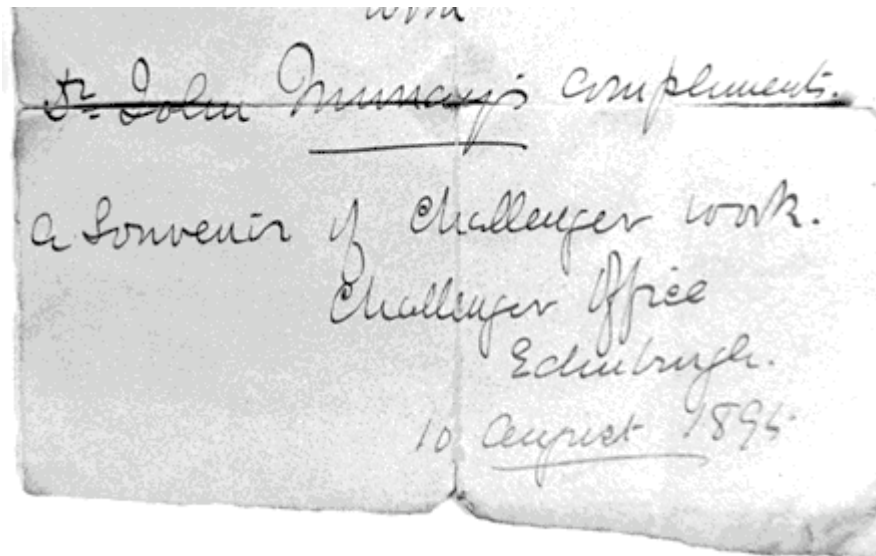 with
Dr. John Murray's compliments.
a Souvenir of Challenger work.
Challenger Office
Edinburgh.
10 August 1895